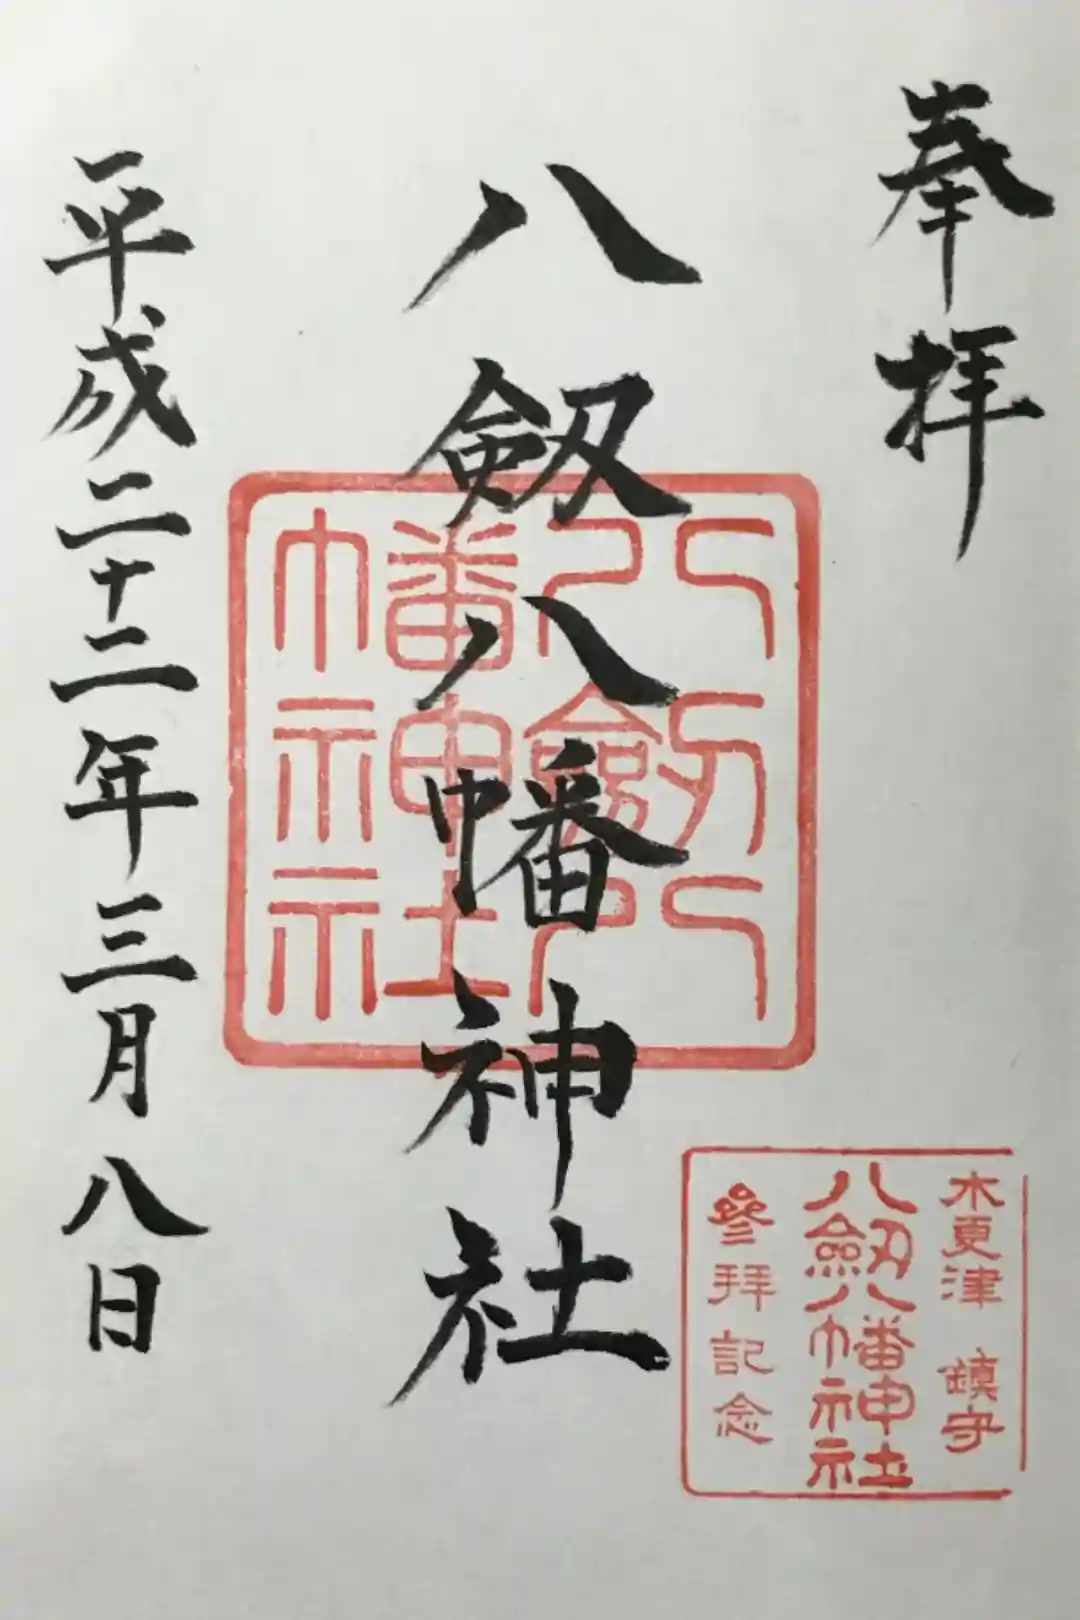 奉拝
八剱八幡神社
八剱八
幡神社
平成二十二年三月八日
木更津 鎮守
八剱八幡神社
參拜記念